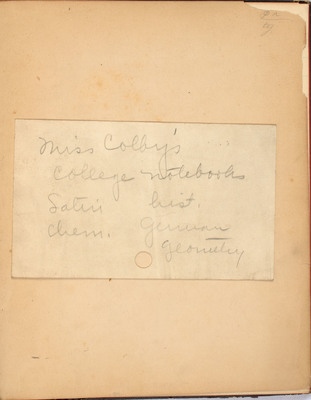 Miss Colby's
College notebooks
Latin hist.
Chem. German
Geometry